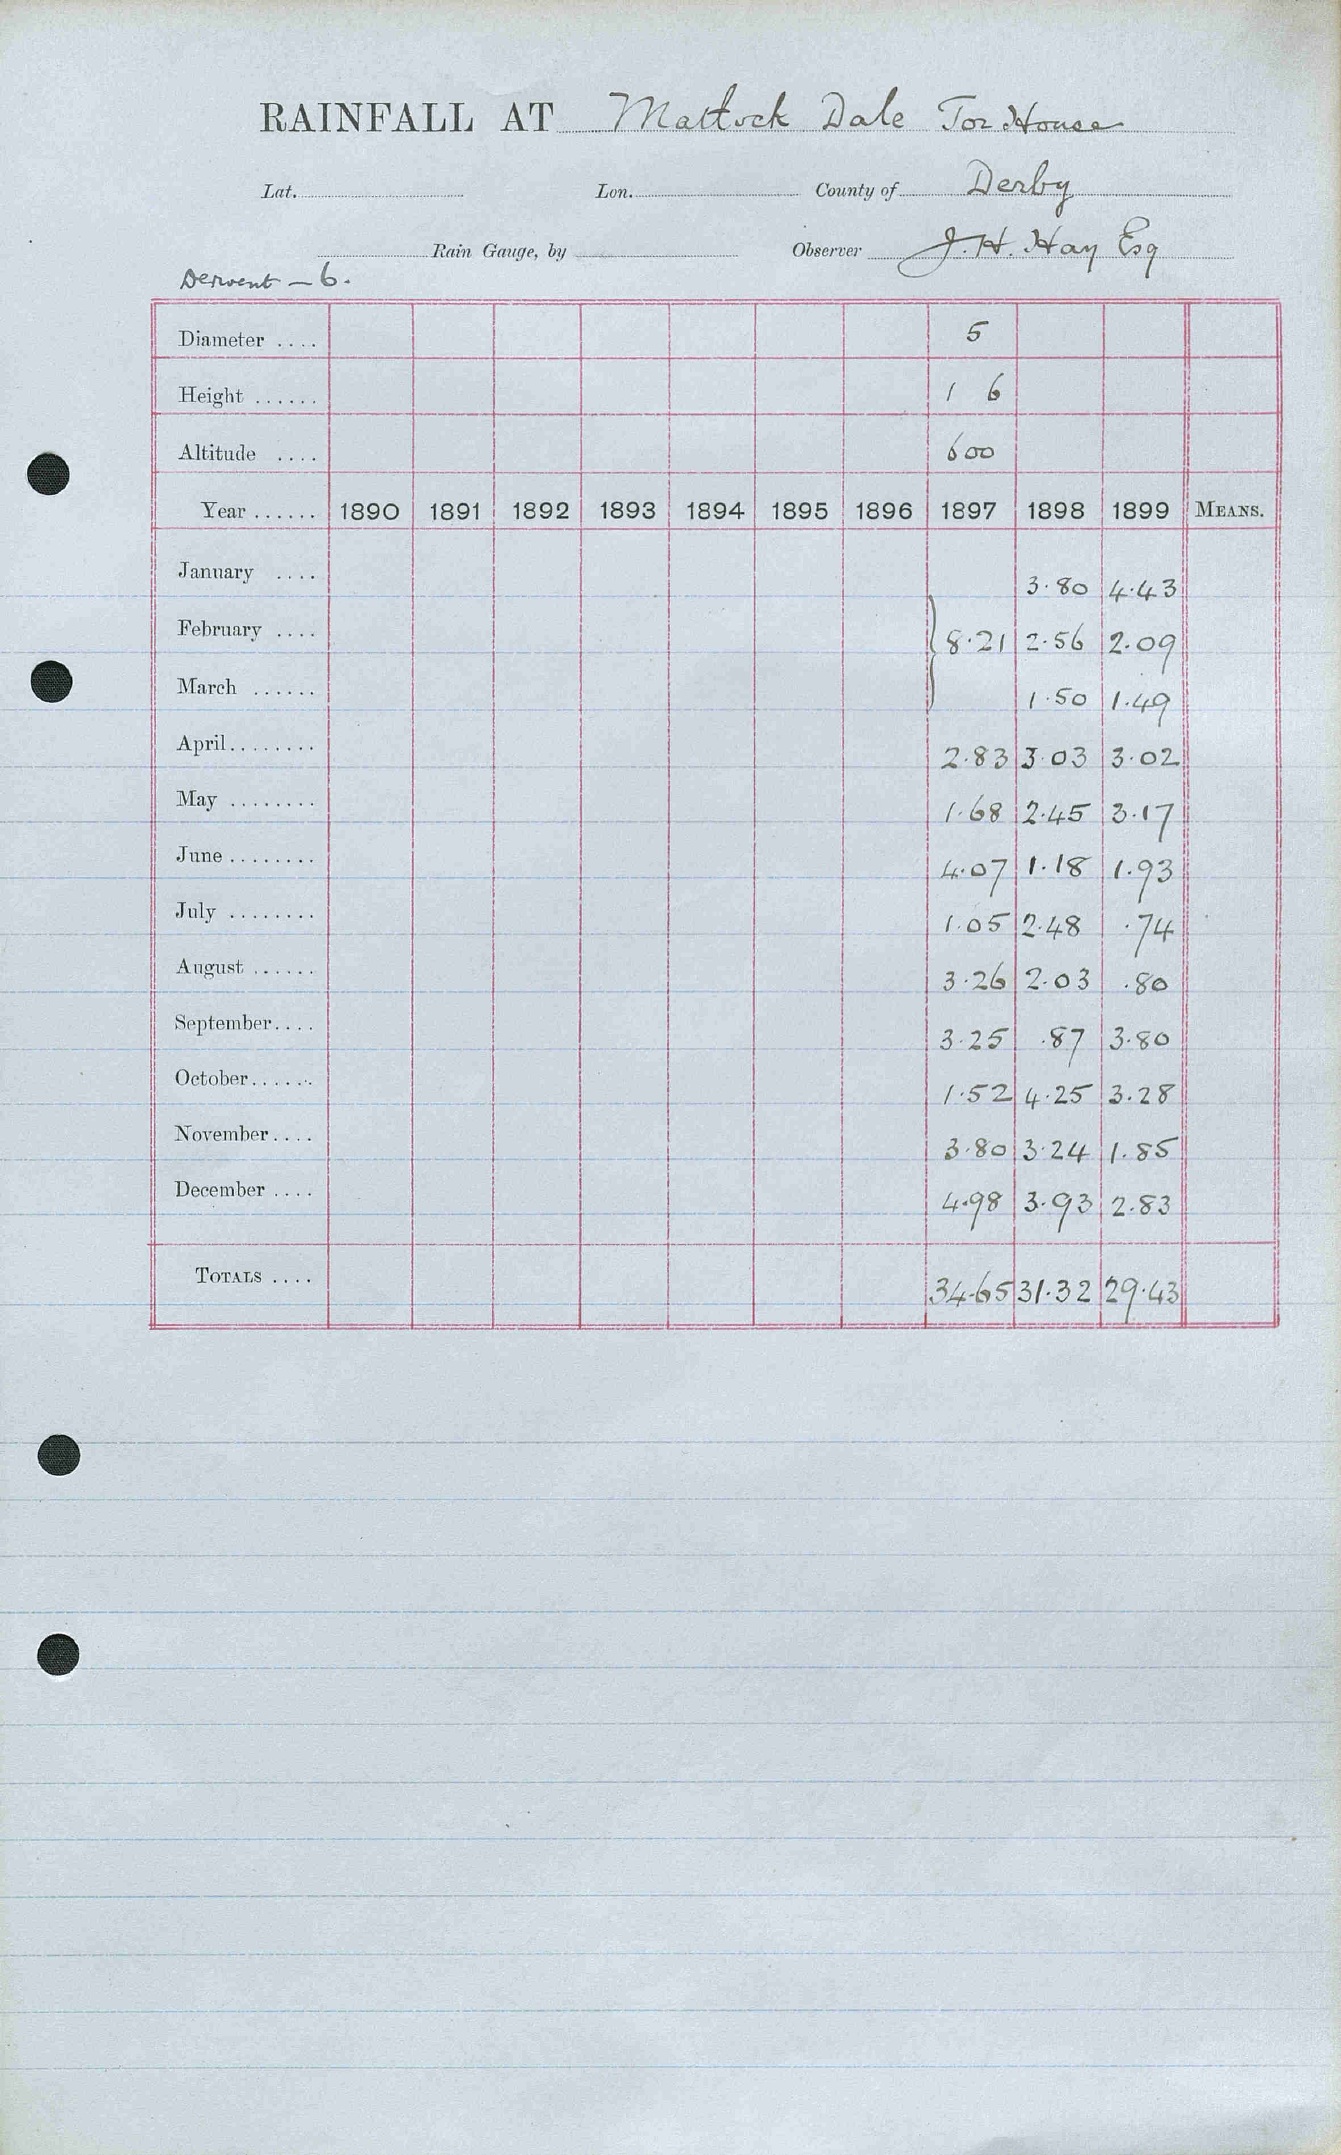 RAINFALL AT Matlock Dale Tor House
Lat. Lon. County of Derby
Rain Gauge, by Observer J. H. Hay Esq
Derwent – 6.
Diameter .... 5
Height ...... 1 6
Altitude .... 600
Year ...... 1890 1891 1892 1893 1894 1895 1896 1897 1898 1899 MEANS.
January .... 3.80 4.43
February .... } 8.21 2.56 2.09
March ...... 1.50 1.49
April........ 2.83 3.03 3.02
May ........ 1.68 2.45 3.17
June ........ 4.07 1.18 1.93
July ........ 1.05 2.48 .74
August ...... 3.26 2.03 .80
September.... 3.25 .87 3.80
October...... 1.52 4.25 3.28
November.... 3.80 3.24 1.85
December .... 4.98 3.93 2.83
TOTALS .... 34.65 31.32 29.43